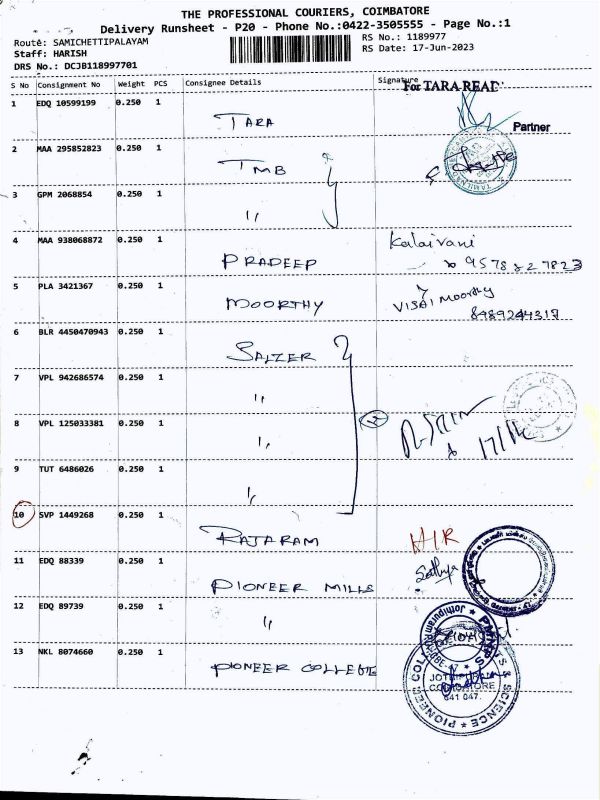 THE PROFESSIONAL COURIERS, COIMBATORE
Delivery Runsheet - P20 - Phone No.:0422-3505555 - Page No.:1
Route: SAMICHETTIPALAYAM
Staff: HARISH
DRS No.: DCJB118997701
RS No.: 1189977
RS Date: 17-Jun-2023
S No Consignment No Weight PCS Consignee Details Signature
For TARA READ
Partner
1 EDQ 10599199 0.250 1 TARA
2 MAA 295852823 0.250 1 TMB
3 GPM 2068854 0.250 1 "
4 MAA 938068872 0.250 1 PRADEEP Kalaivani
9578827823
5 PLA 3421367 0.250 1 MOORTHY VIJAI Moorthy
8489244317
6 BLR 4450470943 0.250 1 SALZER
7 VPL 942686574 0.250 1 "
8 VPL 125033381 0.250 1 "
9 TUT 6486026 0.250 1 "
10 SVP 1449268 0.250 1 RAJARAM
11 EDQ 88339 0.250 1 PIONEER MILLS Sathya
12 EDQ 89739 0.250 1 "
13 NKL 8074660 0.250 1 PIONEER COLLEGE
Jothipuram
PIONEER COLL
TS & SCIENCE
JOTHIPURAM
COIMBATORE
641 047.